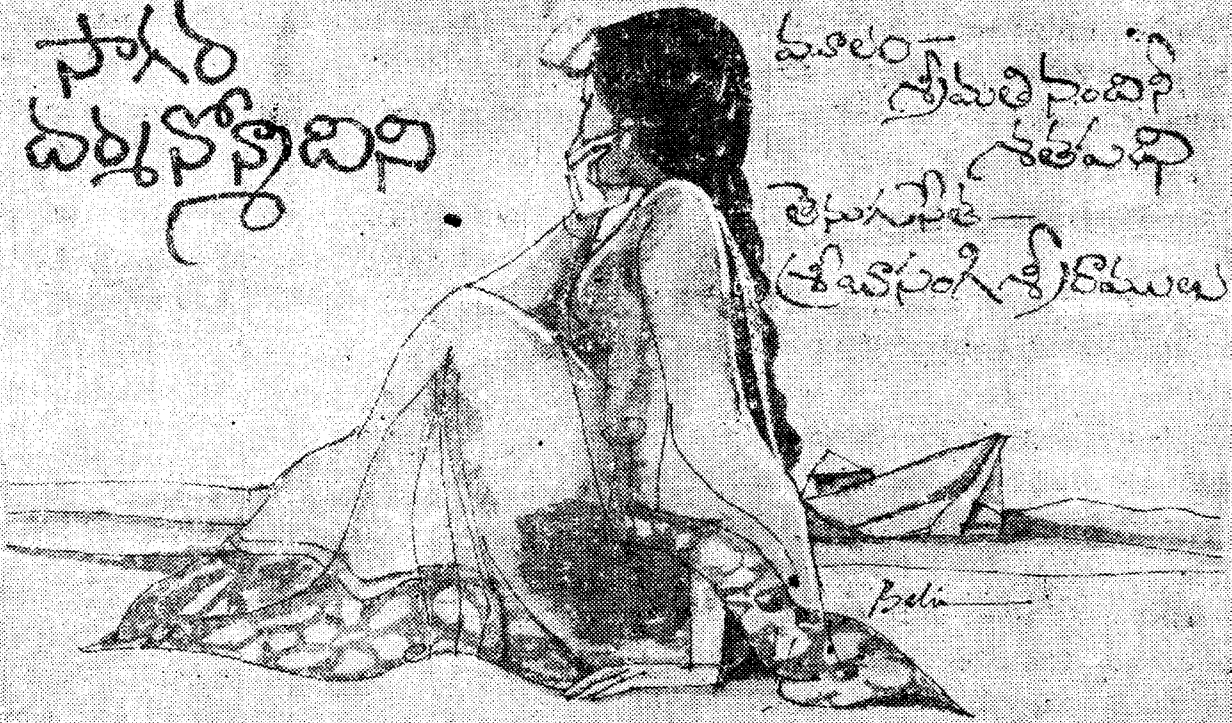 సాగర
దర్శనోన్మాదిని
మూలం—
శ్రీమతి నందిని
శతపథి
తెనుగుసేత—
శ్రీ బాసంగి శ్రీరాములు
Bali